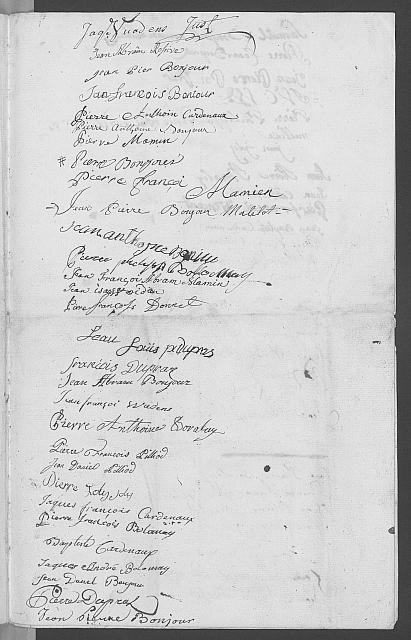 Jaq. Vuadens Just
Jean Abram
Jean Pier Bonjour
Jan françois Bonjour
Pierre Anthoin Cardenaux
Pierre Anthoine Bonjour
Pierre Mamin
Pierre Bonjores
Pierre françoi Mamien
Jean Pierre Bonjour Malelot
Jean anthoine
Pierre philipp Bolomay
Jean François Abram Mamin
Jean
Pierre françois Bonnet
Jean Louis Dupres
francois Dupraz
Jean Abram Bonjour
Jean françoi Wadens
Pierre Anthoine
Piere François Pilliod
Jean Daniel Pilliod
Pierre Joly Joly
Jaques françois Cardenaux
Pierre françois Bolomay
Baptiste Cardenaux
Jaques André Bolomay
Jean Daniel Bonjour
Pierre Dupraz
Jean Pierre Bonjour